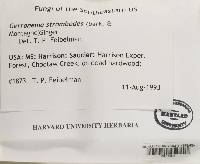 Fungi of the Southeastern US
Gerronema strombodes (Berk. &
Mont.) Singer
Det. T. P. Feibelman
USA: MS: Harrison: Saucier: Harrison Exper.
Forest, Choctaw Creek, on dead hardwood;
T. P. Feibelman
11-Aug-1993
HARVARD UNIVERSITY HERBARIA